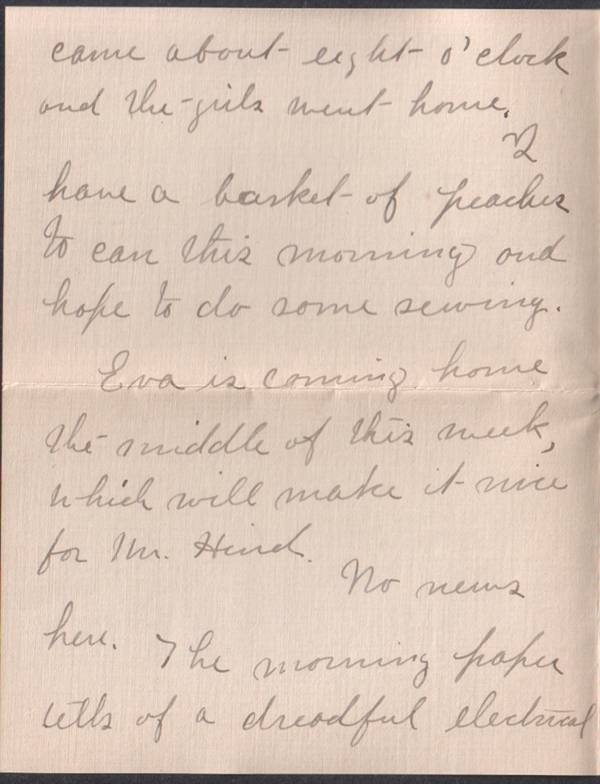 came about eight o'clock
and the girls went home.
I
have a basket of peaches
to can this morning and
hope to do some sewing.
Eva is coming home
the middle of this week,
which will make it nice
for Mr. Hind.
No news
here. The morning paper
tells of a dreadful electrical